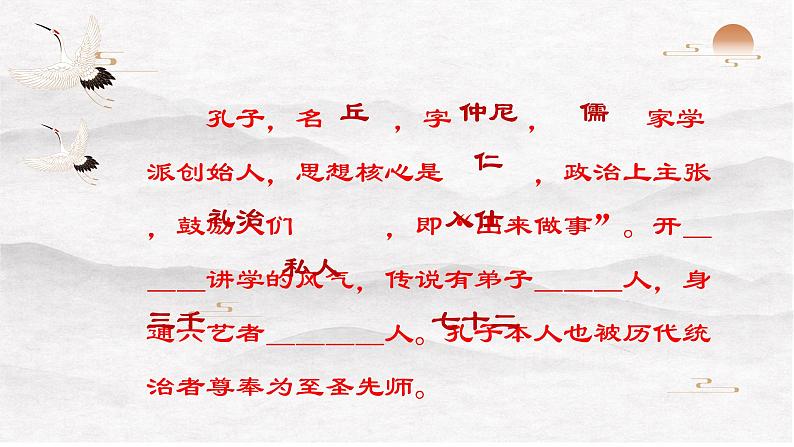 孔子，名 丘 ，字 仲尼 ， 儒 家学
派创始人，思想核心是 仁 ，政治上主张
礼治
，鼓励人们 ，即“出来做事”。开__
入仕
____讲学的风气，传说有弟子______人，身
私人
通六艺者________人。孔子本人也被历代统
三千 七十二
治者尊奉为至圣先师。